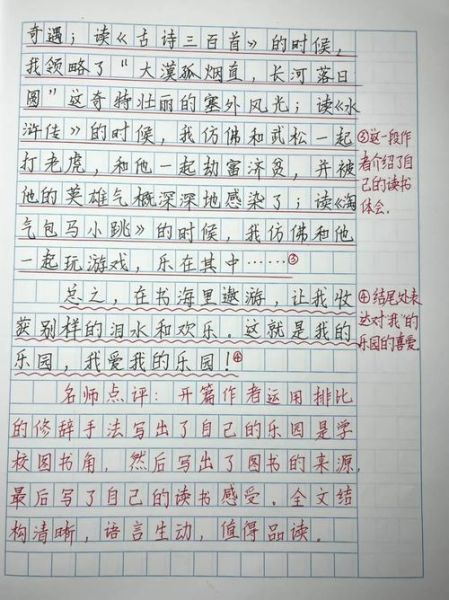 奇遇；读《古诗三百首》的时候，
我领略了“大漠孤烟直，长河落日
圆”这奇特壮丽的塞外风光；读《水
浒传》的时候，我仿佛和武松一起
打老虎，和他一起劫富济贫，并被
他的英雄气概深深地感染了；读《淘
气包马小跳》的时候，我仿佛和他
一起玩游戏，乐在其中……③
总之，在书海里遨游，让我收
获别样的泪水和欢乐。这就是我的
乐园，我爱我的乐园！④
名师点评：开篇作者运用排比
的修辞手法写出了自己的乐园是学
校图书角，然后写出了图书的来源，
最后写了自己的读书感受。全文结
构清晰，语言生动，值得品读。
③这一段作
者介绍了自
己的读书
体会。
④结尾处表
达对“我”的
乐园的喜爱